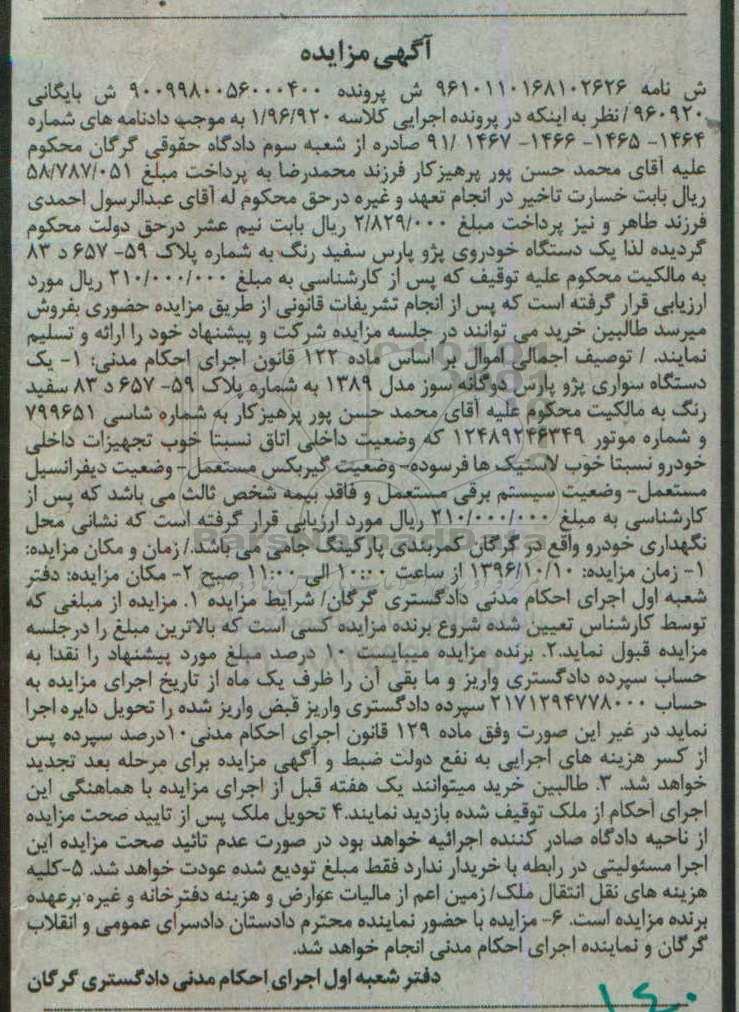 آگهی مزایده
ش نامه ۹۶۱۰۱۱۰۱۶۸۱۰۲۶۲۶ ش پرونده ۹۰۰۹۹۸۰۰۵۶۰۰۰۴۰۰ ش بایگانی
۹۶۰۹۲۰ / نظر به اینکه در پرونده اجرایی کلاسه ۱/۹۶/۹۲۰ به موجب دادنامه های شماره
۱۴۶۴- ۱۴۶۵- ۱۴۶۶- ۱۴۶۷ /۹۱ صادره از شعبه سوم دادگاه حقوقی گرگان محکوم
علیه آقای محمد حسن پور پرهیزکار فرزند محمدرضا به پرداخت مبلغ ۵۸/۷۸۷/۰۵۱
ریال بابت خسارت تاخیر در انجام تعهد و غیره درحق محکوم له آقای عبدالرسول احمدی
فرزند طاهر و نیز پرداخت مبلغ ۲/۸۲۹/۰۰۰ ریال بابت نیم عشر درحق دولت محکوم
گردیده لذا یک دستگاه خودروی پژو پارس سفید رنگ به شماره پلاک ۵۹- ۶۵۷ د ۸۳
به مالکیت محکوم علیه توقیف که پس از کارشناسی به مبلغ ۲۱۰/۰۰۰/۰۰۰ ریال مورد
ارزیابی قرار گرفته است که پس از انجام تشریفات قانونی از طریق مزایده حضوری بفروش
میرسد طالبین خرید می توانند در جلسه مزایده شرکت و پیشنهاد خود را ارائه و تسلیم
نمایند. / توصیف اجمالی اموال بر اساس ماده ۱۲۲ قانون اجرای احکام مدنی: ۱- یک
دستگاه سواری پژو پارس دوگانه سوز مدل ۱۳۸۹ به شماره پلاک ۵۹- ۶۵۷ د ۸۳ سفید
رنگ به مالکیت محکوم علیه آقای محمد حسن پور پرهیزکار به شماره شاسی ۷۹۹۶۵۱
و شماره موتور ۱۲۴۸۹۲۴۶۳۴۹ که وضعیت داخلی اتاق نسبتا خوب تجهیزات داخلی
خودرو نسبتا خوب لاستیک ها فرسوده- وضعیت گیربکس مستعمل- وضعیت دیفرانسیل
مستعمل- وضعیت سیستم برقی مستعمل و فاقد بیمه شخص ثالث می باشد که پس از
کارشناسی به مبلغ ۲۱۰/۰۰۰/۰۰۰ ریال مورد ارزیابی قرار گرفته است که نشانی محل
نگهداری خودرو واقع در گرگان کمربندی پارکینگ جامی می باشد./ زمان و مکان مزایده:
۱- زمان مزایده: ۱۳۹۶/۱۰/۱۰ از ساعت ۱۰:۰۰ الی ۱۱:۰۰ صبح ۲- مکان مزایده: دفتر
شعبه اول اجرای احکام مدنی دادگستری گرگان/ شرایط مزایده ۱. مزایده از مبلغی که
توسط کارشناس تعیین شده شروع برنده مزایده کسی است که بالاترین مبلغ را درجلسه
مزایده قبول نماید.۲. برنده مزایده میبایست ۱۰ درصد مبلغ مورد پیشنهاد را نقدا به
حساب سپرده دادگستری واریز و ما بقی آن را ظرف یک ماه از تاریخ اجرای مزایده به
حساب ۲۱۷۱۲۹۴۷۷۸۰۰۰ سپرده دادگستری واریز قبض واریز شده را تحویل دایره اجرا
نماید در غیر این صورت وفق ماده ۱۲۹ قانون اجرای احکام مدنی۱۰درصد سپرده پس
از کسر هزینه های اجرایی به نفع دولت ضبط و آگهی مزایده برای مرحله بعد تجدید
خواهد شد. ۳. طالبین خرید میتوانند یک هفته قبل از اجرای مزایده با هماهنگی این
اجرای احکام از ملک توقیف شده بازدید نمایند.۴ تحویل ملک پس از تایید صحت مزایده
از ناحیه دادگاه صادر کننده اجرائیه خواهد بود در صورت عدم تائید صحت مزایده این
اجرا مسئولیتی در رابطه با خریدار ندارد فقط مبلغ تودیع شده عودت خواهد شد. ۵-کلیه
هزینه های نقل انتقال ملک/ زمین اعم از مالیات عوارض و هزینه دفترخانه و غیره برعهده
برنده مزایده است. ۶- مزایده با حضور نماینده محترم دادستان دادسرای عمومی و انقلاب
گرگان و نماینده اجرای احکام مدنی انجام خواهد شد.
دفتر شعبه اول اجرای احکام مدنی دادگستری گرگان
۱۴۰
ParsNamadData